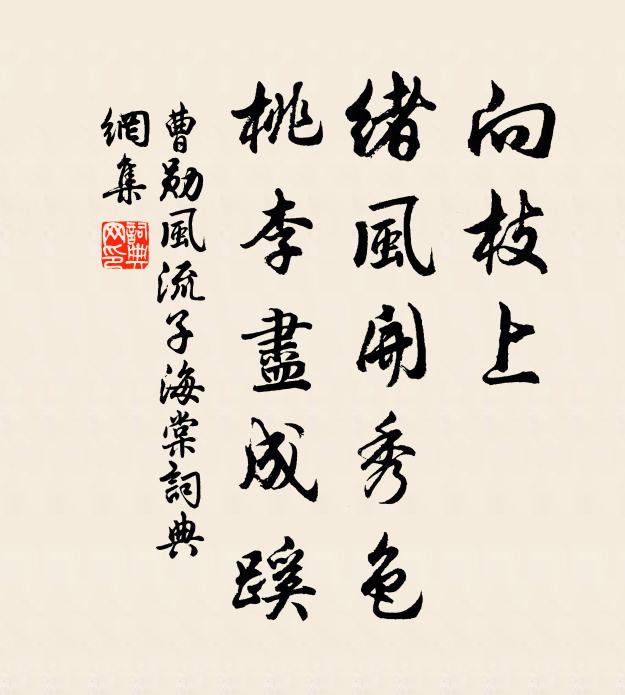 向枝上
緒風開秀色
桃李盡成蹊
曹勛風流子海棠詞典
網集
詞典
网印